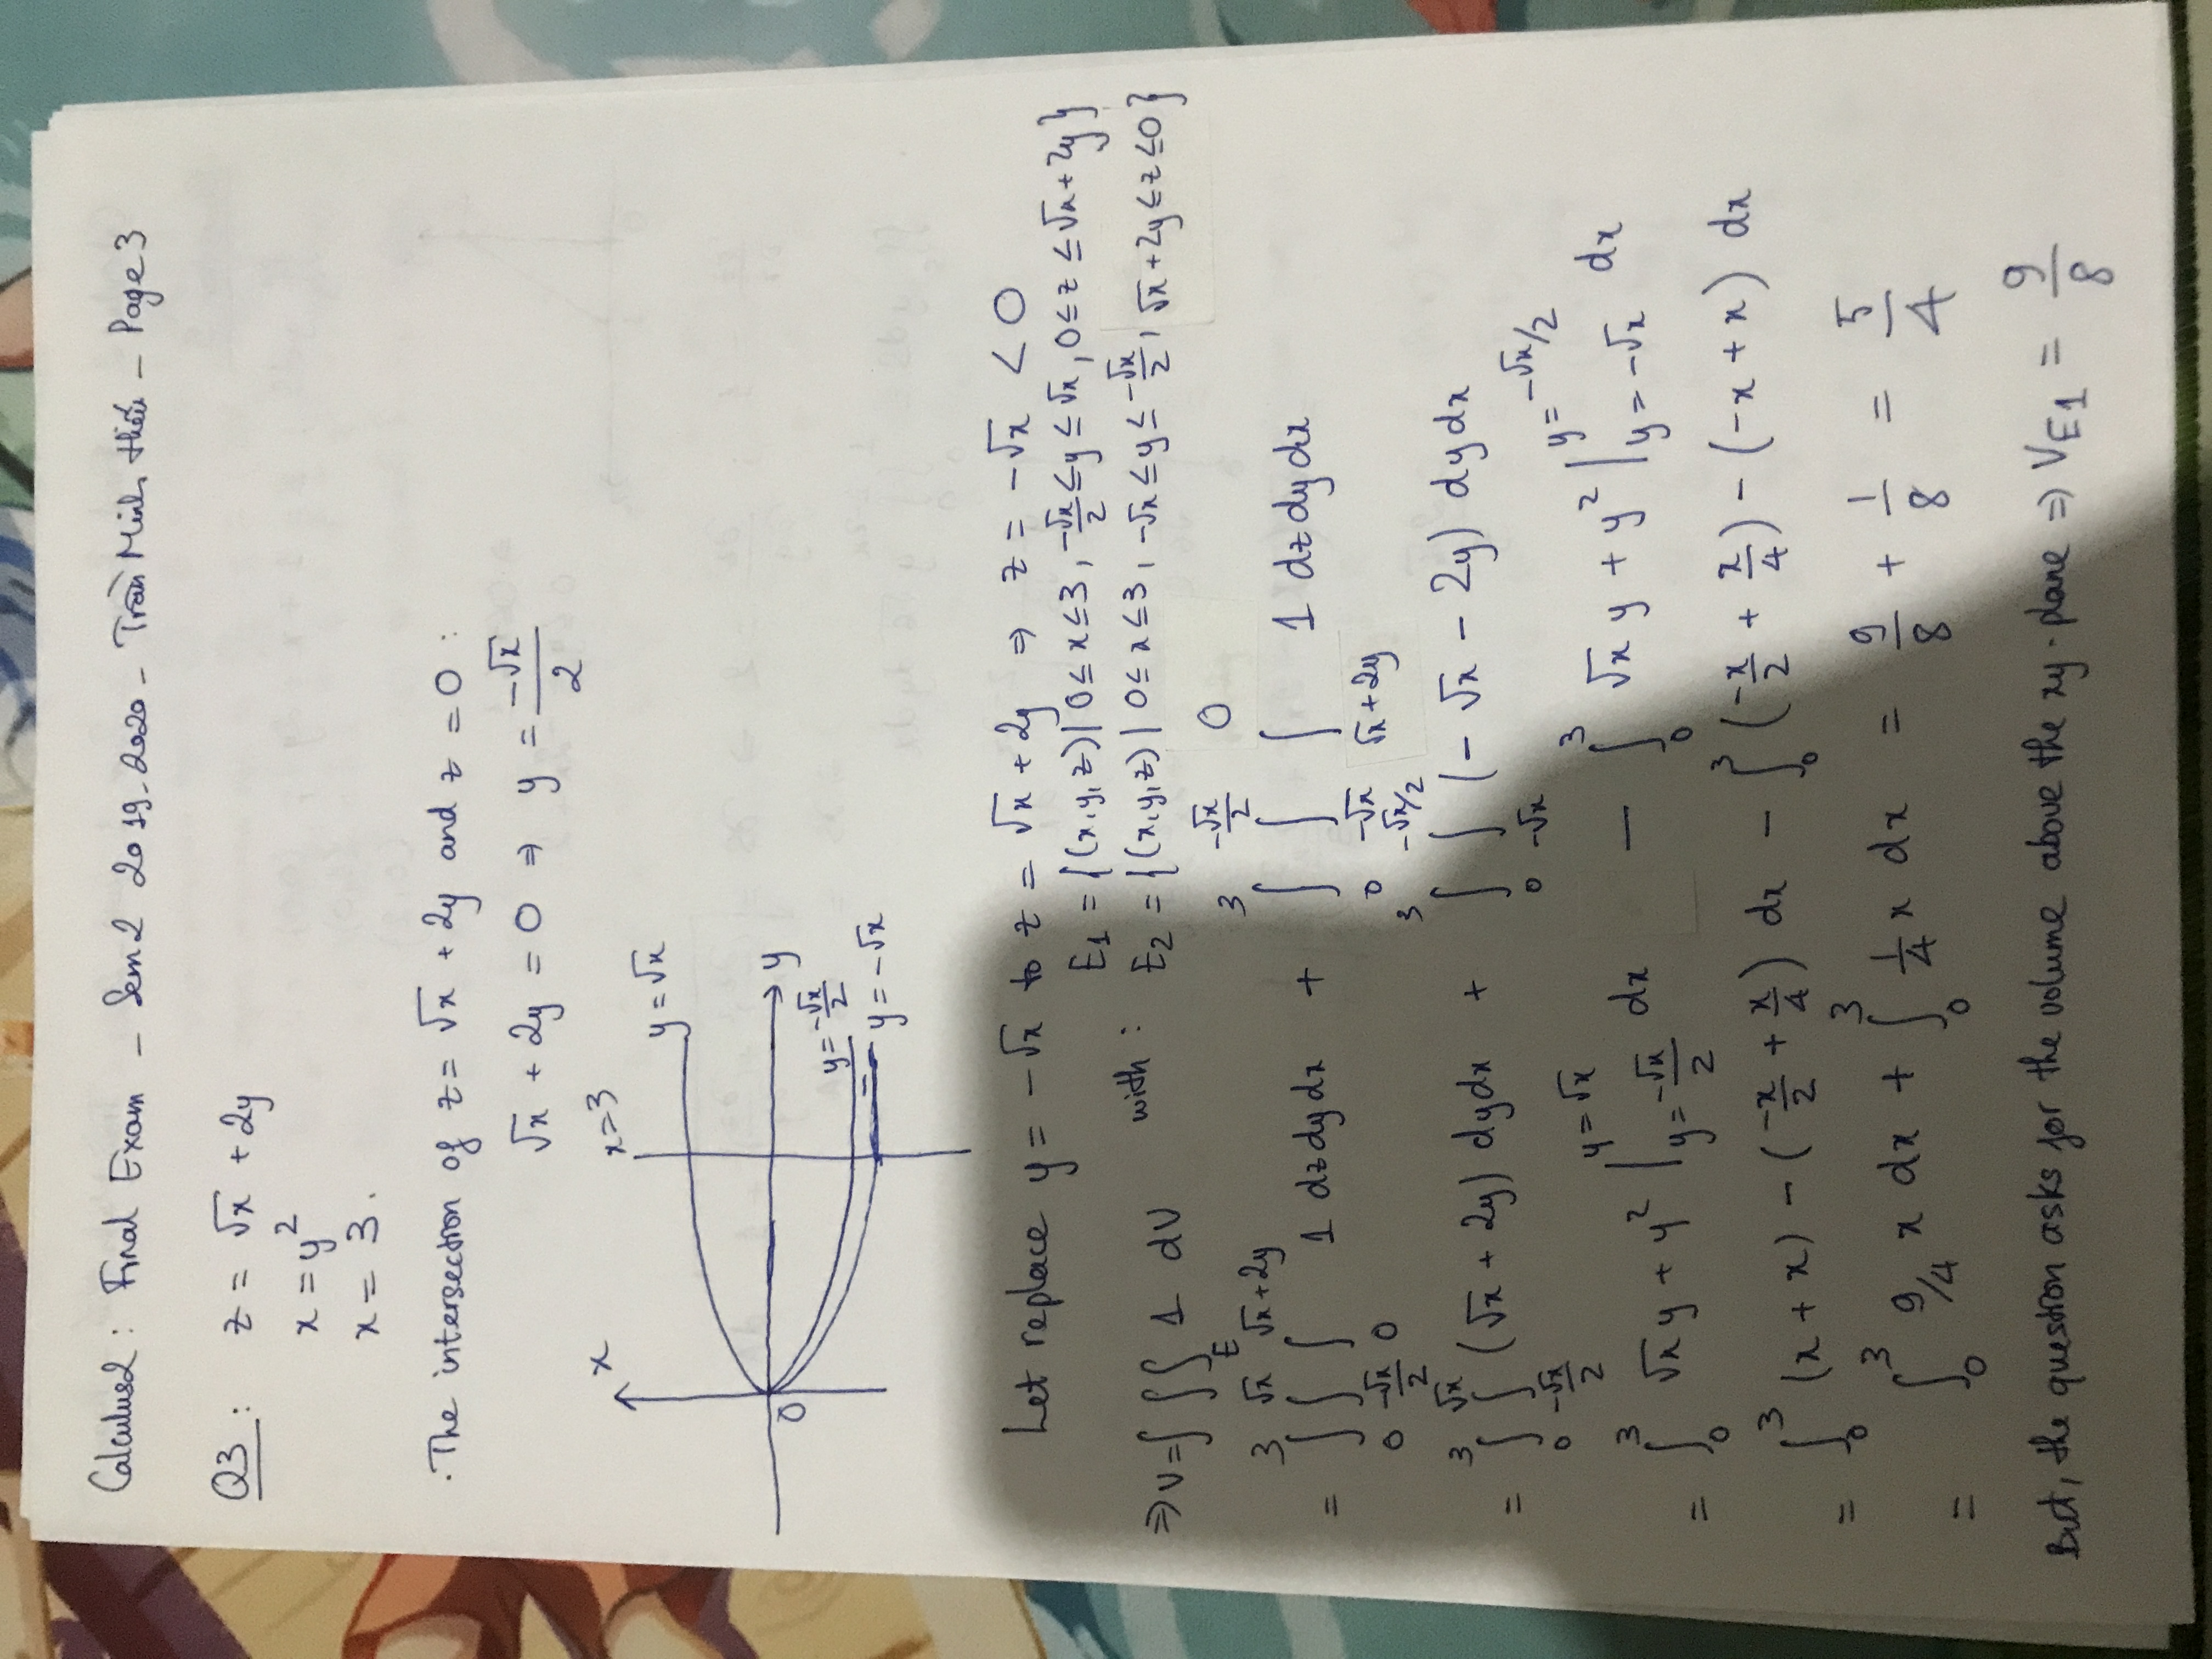 Calculus2 : Final Exam – Sem 2 2019-2020 – Trần Minh Hiếu – Page 3
Q3 : z = √x + 2y
x = y²
x = 3.
· The intersection of z = √x + 2y and z = 0 :
√x + 2y = 0 ⇒ y = -√x/2
x
x=3
y = √x
0
y
y = -√x/2
y = -√x
Let replace y = -√x to z = √x + 2y ⇒ z = -√x < 0
E1 = {(x,y,z) | 0 ≤ x ≤ 3, -√x/2 ≤ y ≤ √x, 0 ≤ z ≤ √x + 2y}
⇒ V = ∫∫∫_E 1 dV with :
E2 = {(x,y,z) | 0 ≤ x ≤ 3, -√x ≤ y ≤ -√x/2, √x + 2y ≤ z ≤ 0}
= ∫_0^3 ∫_{-√x/2}^{√x} ∫_0^{√x+2y} 1 dz dy dx + ∫_0^3 ∫_{-√x}^{-√x/2} ∫_{√x+2y}^0 1 dz dy dx
= ∫_0^3 ∫_{-√x/2}^{√x} (√x + 2y) dy dx + ∫_0^3 ∫_{-√x}^{-√x/2} (- √x - 2y) dy dx
= ∫_0^3 √x y + y² |_{y=-√x/2}^{y=√x} dx - ∫_0^3 √x y + y² |_{y=-√x}^{y=-√x/2} dx
= ∫_0^3 (x + x) - (-x/2 + x/4) dx - ∫_0^3 (-x/2 + x/4) - (-x + x) dx
= ∫_0^3 9/4 x dx + ∫_0^3 1/4 x dx = 9/8 + 1/8 = 5/4
But, the question asks for the volume above the xy-plane ⇒ V_E1 = 9/8